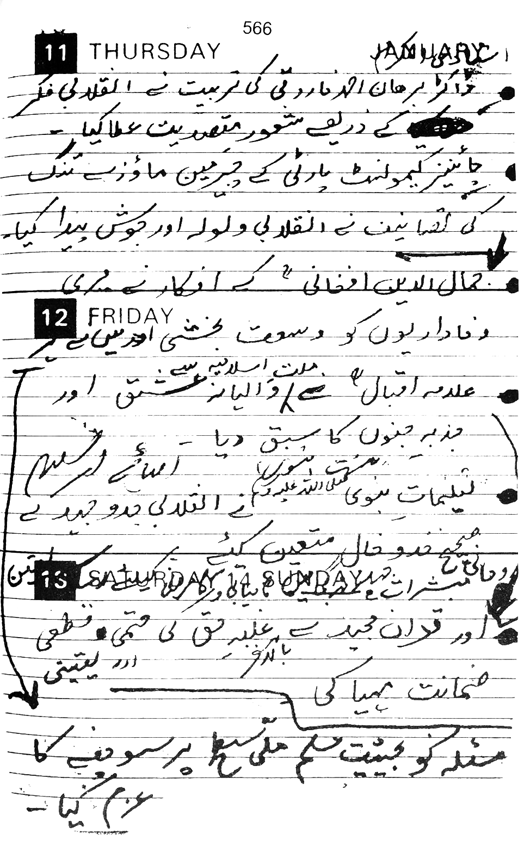 566
11 THURSDAY JANUARY
ڈاکٹر برھان احمد فاروقی کی تربیت نے انقلابی فکر
کے ذریعے شعورِ مقصدیت عطا کیا -
چائینیز کیمونسٹ پارٹی کے چیرمین ماؤزے تنگ
کی تصانیف نے انقلابی ولولہ اور جوش پیدا کیا -
جمال الدین افغانی کے افکار نے میری
12 FRIDAY
وفاداریوں کو وسعت بخشی اور
ملت اسلامیہ سے
علامہ اقبال نے والہانہ عشق اور
جذبہ جنوں کا سبق دیا -
تعلیمات نبوی صلی اللہ علیہ وسلم نے انقلابی جدوجہد کے
صحیح خدوخال متعین کیئے
13 SATURDAY 14 SUNDAY
اور قرآن مجید نے غلبہ حق کی حتمی قطعی
بالآخر اور یقینی
ضمانت مہیا کی
مسئلہ کو بحیثیت مسلم ملی سطح پر سوچنے کا
عزم کیا -